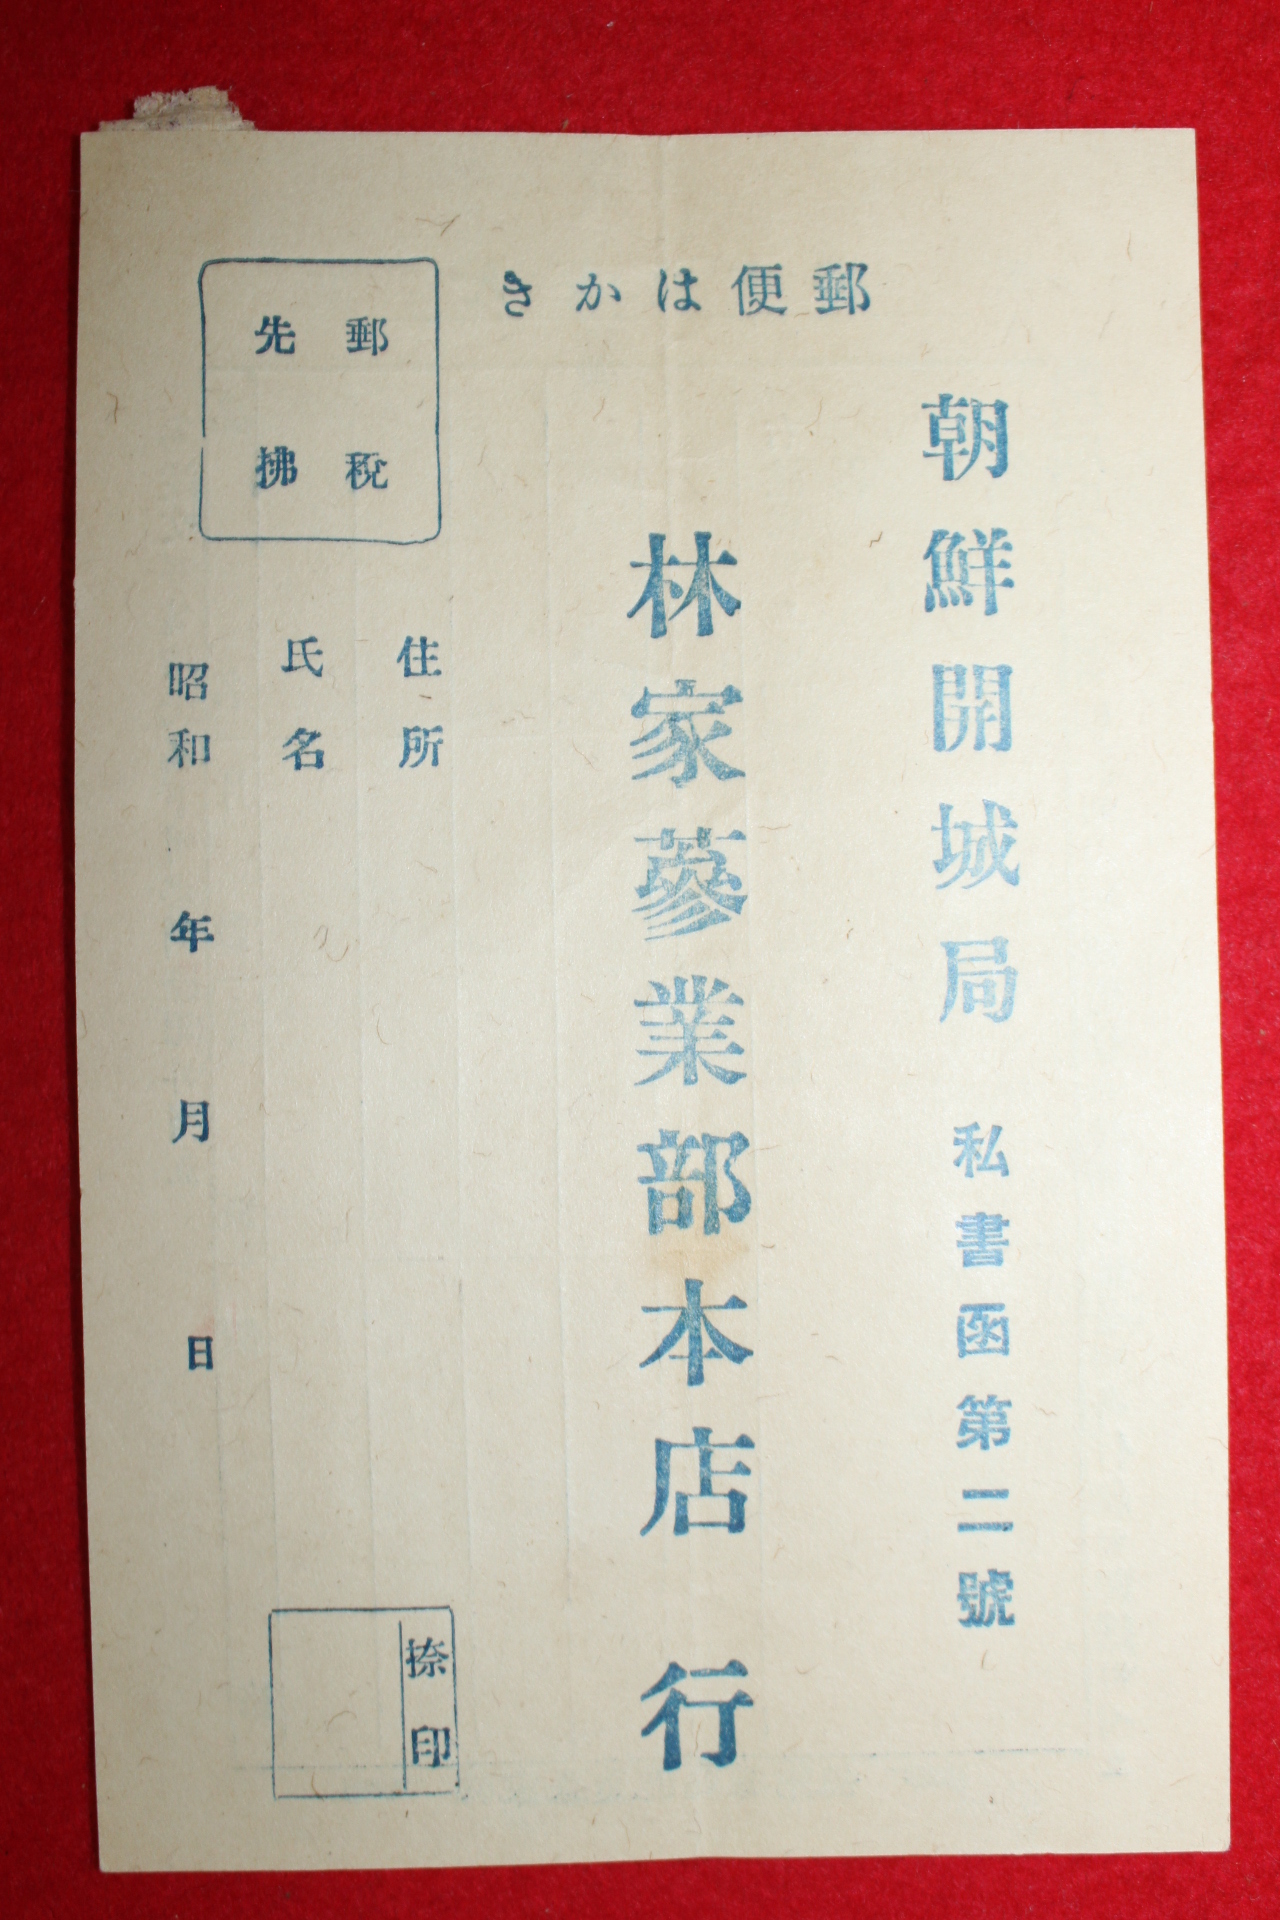 郵便はかき
朝鮮開城局 私書函第二號
林家蔘業部本店 行
郵税
先拂
住所
氏名
昭和 年 月 日
捺印